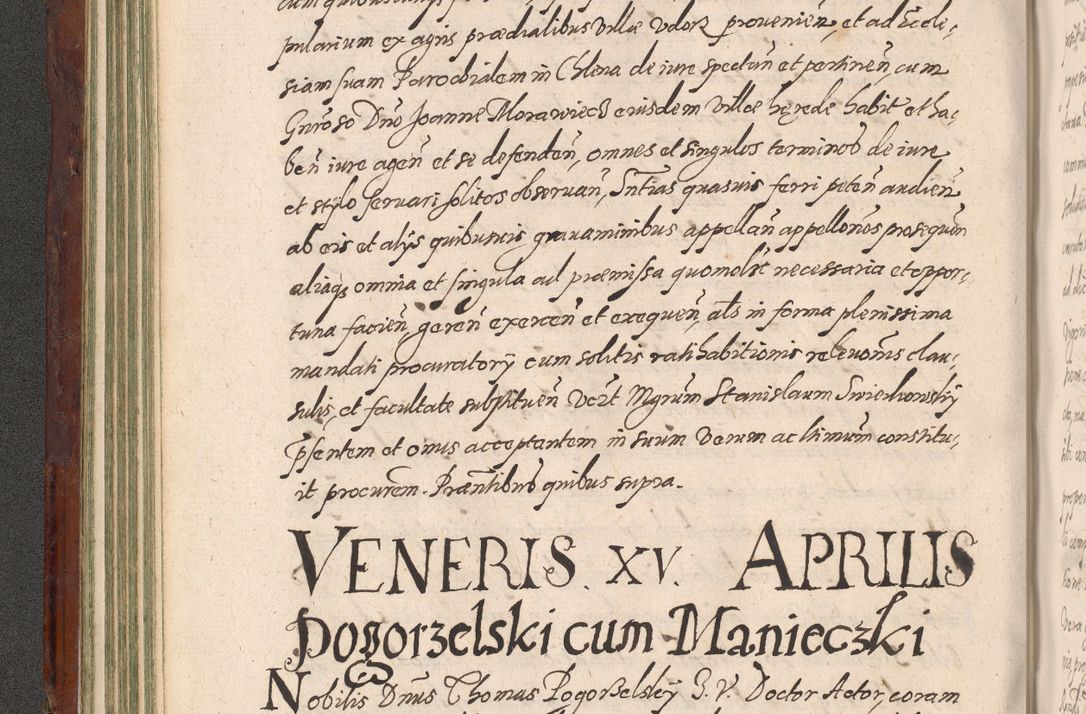 pularium ex agris prædialibus villæ Vdorz provenien, et ad Eccle,
siam suam Parochialem in Chlena de iure spectan et pertinen, cum
Gnroso Dno Joanne Morawiecz eiusdem villæ hęrede habit et ha,
ben iure agen et se defenden, omnes et singulos terminos de iure
et stylo servari solitos observan, Sntias quasuis ferri peten audien
ab eis et alys quibusuis grauaminibus appellan appellones prosequen
aliaqs omnia et singula ad præmissa quomolt necessaria et oppor,
tuna facien, geren exercen et exequen, als in forma plenissima
mandati procuratorÿ cum solitis ratihabitionis releuonis clau,
sulis, et facultate substituen Vert Mgrum Stanislaum Swiechowskÿ
pſentem et onus acceptantem in suum Verum ac ltimum constitu,
it procurem. Præntibus quibus supra.
VENERIS. XV. APRILIS
Pogorzelski cum Manieczki
Nobilis Dnus Thomas Pogorzelskÿ I. V. Doctor Actor, coram